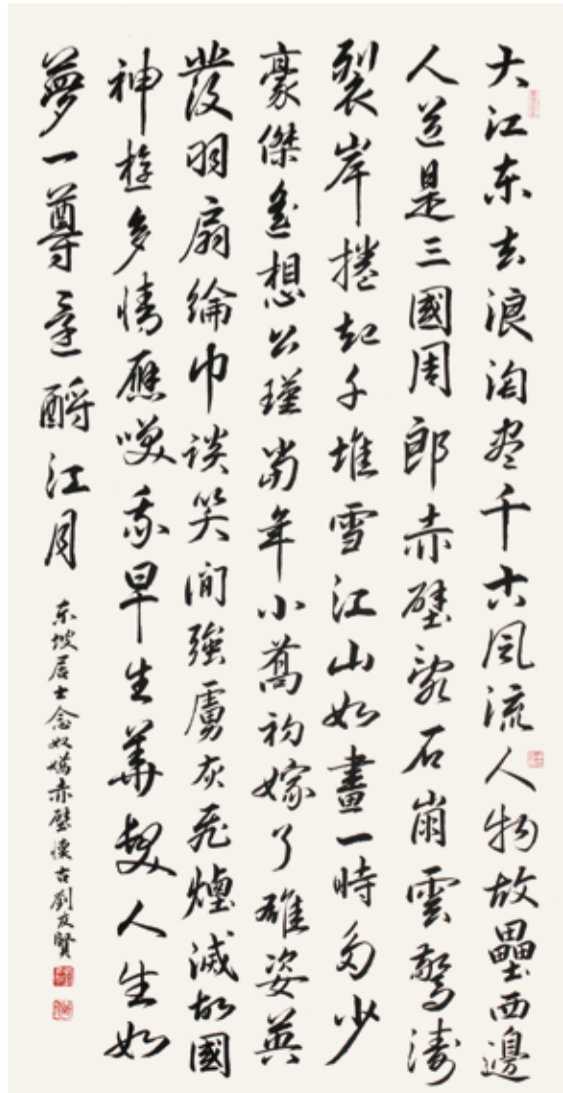 大江东去浪淘尽千古风流人物故壘西邊
人道是三國周郎赤壁亂石崩雲驚濤
裂岸捲起千堆雪江山如畫一時多少
豪傑遥想公瑾當年小喬初嫁了雄姿英
發羽扇綸巾談笑间強虜灰飛煙滅故國
神遊多情應笑我早生華髮人生如
夢一尊還酹江月
东坡居士念奴嬌赤壁懷古劉友賢